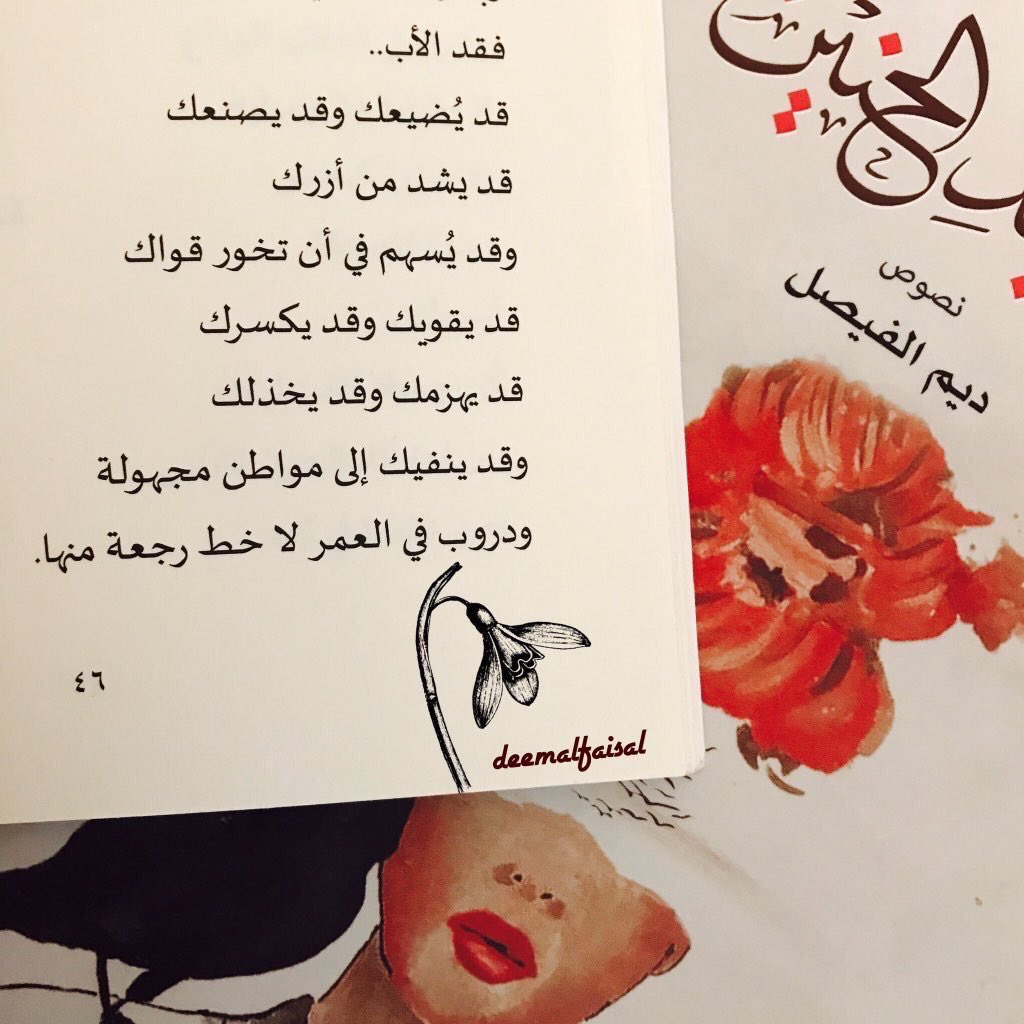 فقد الأب..
قد يُضيعك وقد يصنعك
قد يشد من أزرك
وقد يُسهم في أن تخور قواك
قد يقويك وقد يكسرك
قد يهزمك وقد يخذلك
وقد ينفيك إلى مواطن مجهولة
ودروب في العمر لا خط رجعة منها.
٤٦
deemalfaisal
الحنين
نصوص
ديم الفيصل